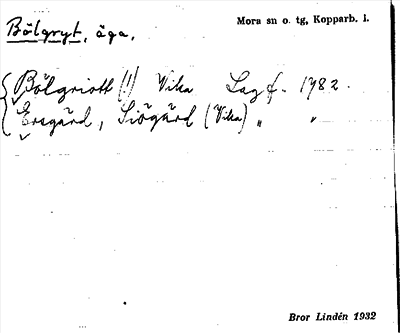 Bölgryt, äga,
Mora sn o. tg, Kopparb. l.
Bölgriott (!) Vika Lag f. 1782.
Ersgård, Siögård (Vika) " "
Bror Lindén 1932